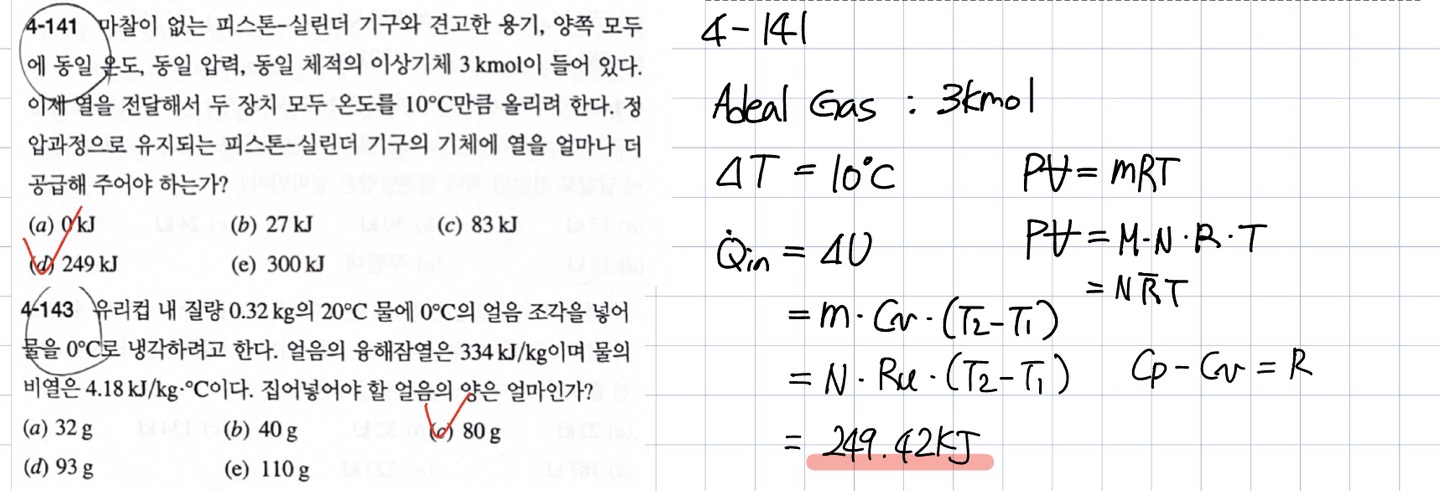 4-141 마찰이 없는 피스톤-실린더 기구와 견고한 용기, 양쪽 모두
에 동일 온도, 동일 압력, 동일 체적의 이상기체 3 kmol이 들어 있다.
이제 열을 전달해서 두 장치 모두 온도를 10°C만큼 올리려 한다. 정
압과정으로 유지되는 피스톤-실린더 기구의 기체에 열을 얼마나 더
공급해 주어야 하는가?
(a) 0 kJ (b) 27 kJ (c) 83 kJ
(d) 249 kJ (e) 300 kJ
4-143 유리컵 내 질량 0.32 kg의 20°C 물에 0°C의 얼음 조각을 넣어
물을 0°C로 냉각하려고 한다. 얼음의 융해잠열은 334 kJ/kg이며 물의
비열은 4.18 kJ/kg·°C이다. 집어넣어야 할 얼음의 양은 얼마인가?
(a) 32 g (b) 40 g (c) 80 g
(d) 93 g (e) 110 g
4-141
Adeal Gas : 3kmol
ΔT = 10°C PV = mRT
Q̇in = ΔU PV = M·N·R·T
= NR̄T
= m·Cv·(T2-T1)
= N·Ru·(T2-T1) Cp-Cv = R
= 249.42KJ